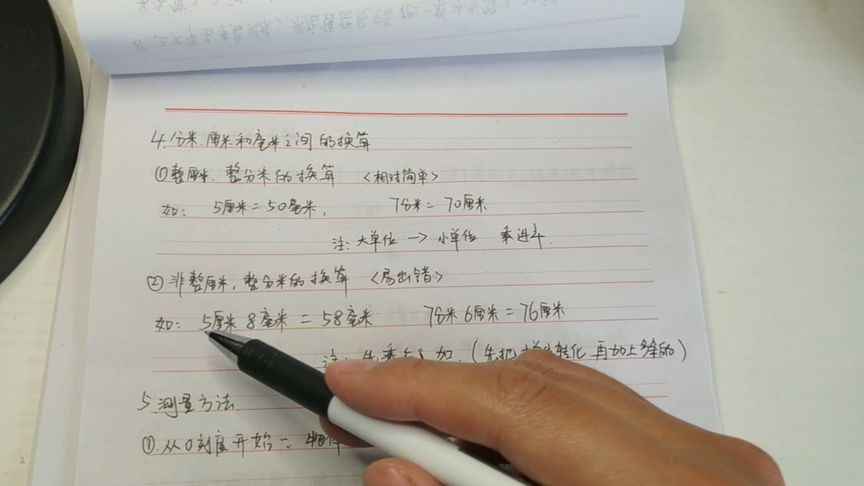 4.分米.厘米和毫米之间的换算
①整厘米,整分米的换算 <相对简单>
如: 5厘米=50毫米, 7分米=70厘米
注:大单位→小单位 乘进率.
②非整厘米,整分米的换算 <易出错>
如: 5厘米8毫米=58毫米 7分米6厘米=76厘米
注: 先乘 加 (先把 转化,再加上多的)
5.测量方法.
①.从0刻度开始